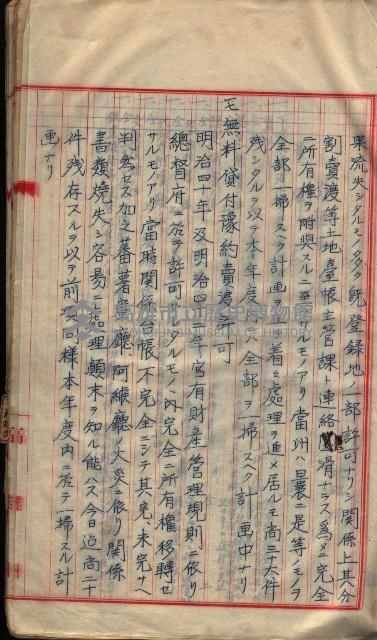 果流失シタルモノ多ク既登録地ノ一部許可ナリシ関係上其分
割賣渡等土地臺帳主管課ト連絡ヲ有ナラス為メニ完全
ニ所有権ヲ附與スルニ至ラサルモノアリ當州ハ曩ニ是等ノモノヲ
全部一掃スヘク計画ヲ樹テ着々處理ヲ進メ居ルモ尚三十六件
残シタルヲ以テ本年度ハ全部ヲ一掃スヘク計画中ナリ
七無料貸付豫約賣渡許可
明治四十年及明治四十二年官有財産管理規則ニ依リ
總督府ニ於テ許可シタルモノノ内完全ニ所有権移轉セ
サルモノアリ當時関係台帳不完全ニシテ其完未完サヘ
判然セス加之蕃薯藔廳、阿緱廳ノ火災ニ依リ関係
書類燒失シ容易ニ處理顛末ヲ知ル能ハス今日迠尚二十
件残存スルヲ以テ前項同様本年度内ニ於テ一掃スル計
画ナリ
高雄州